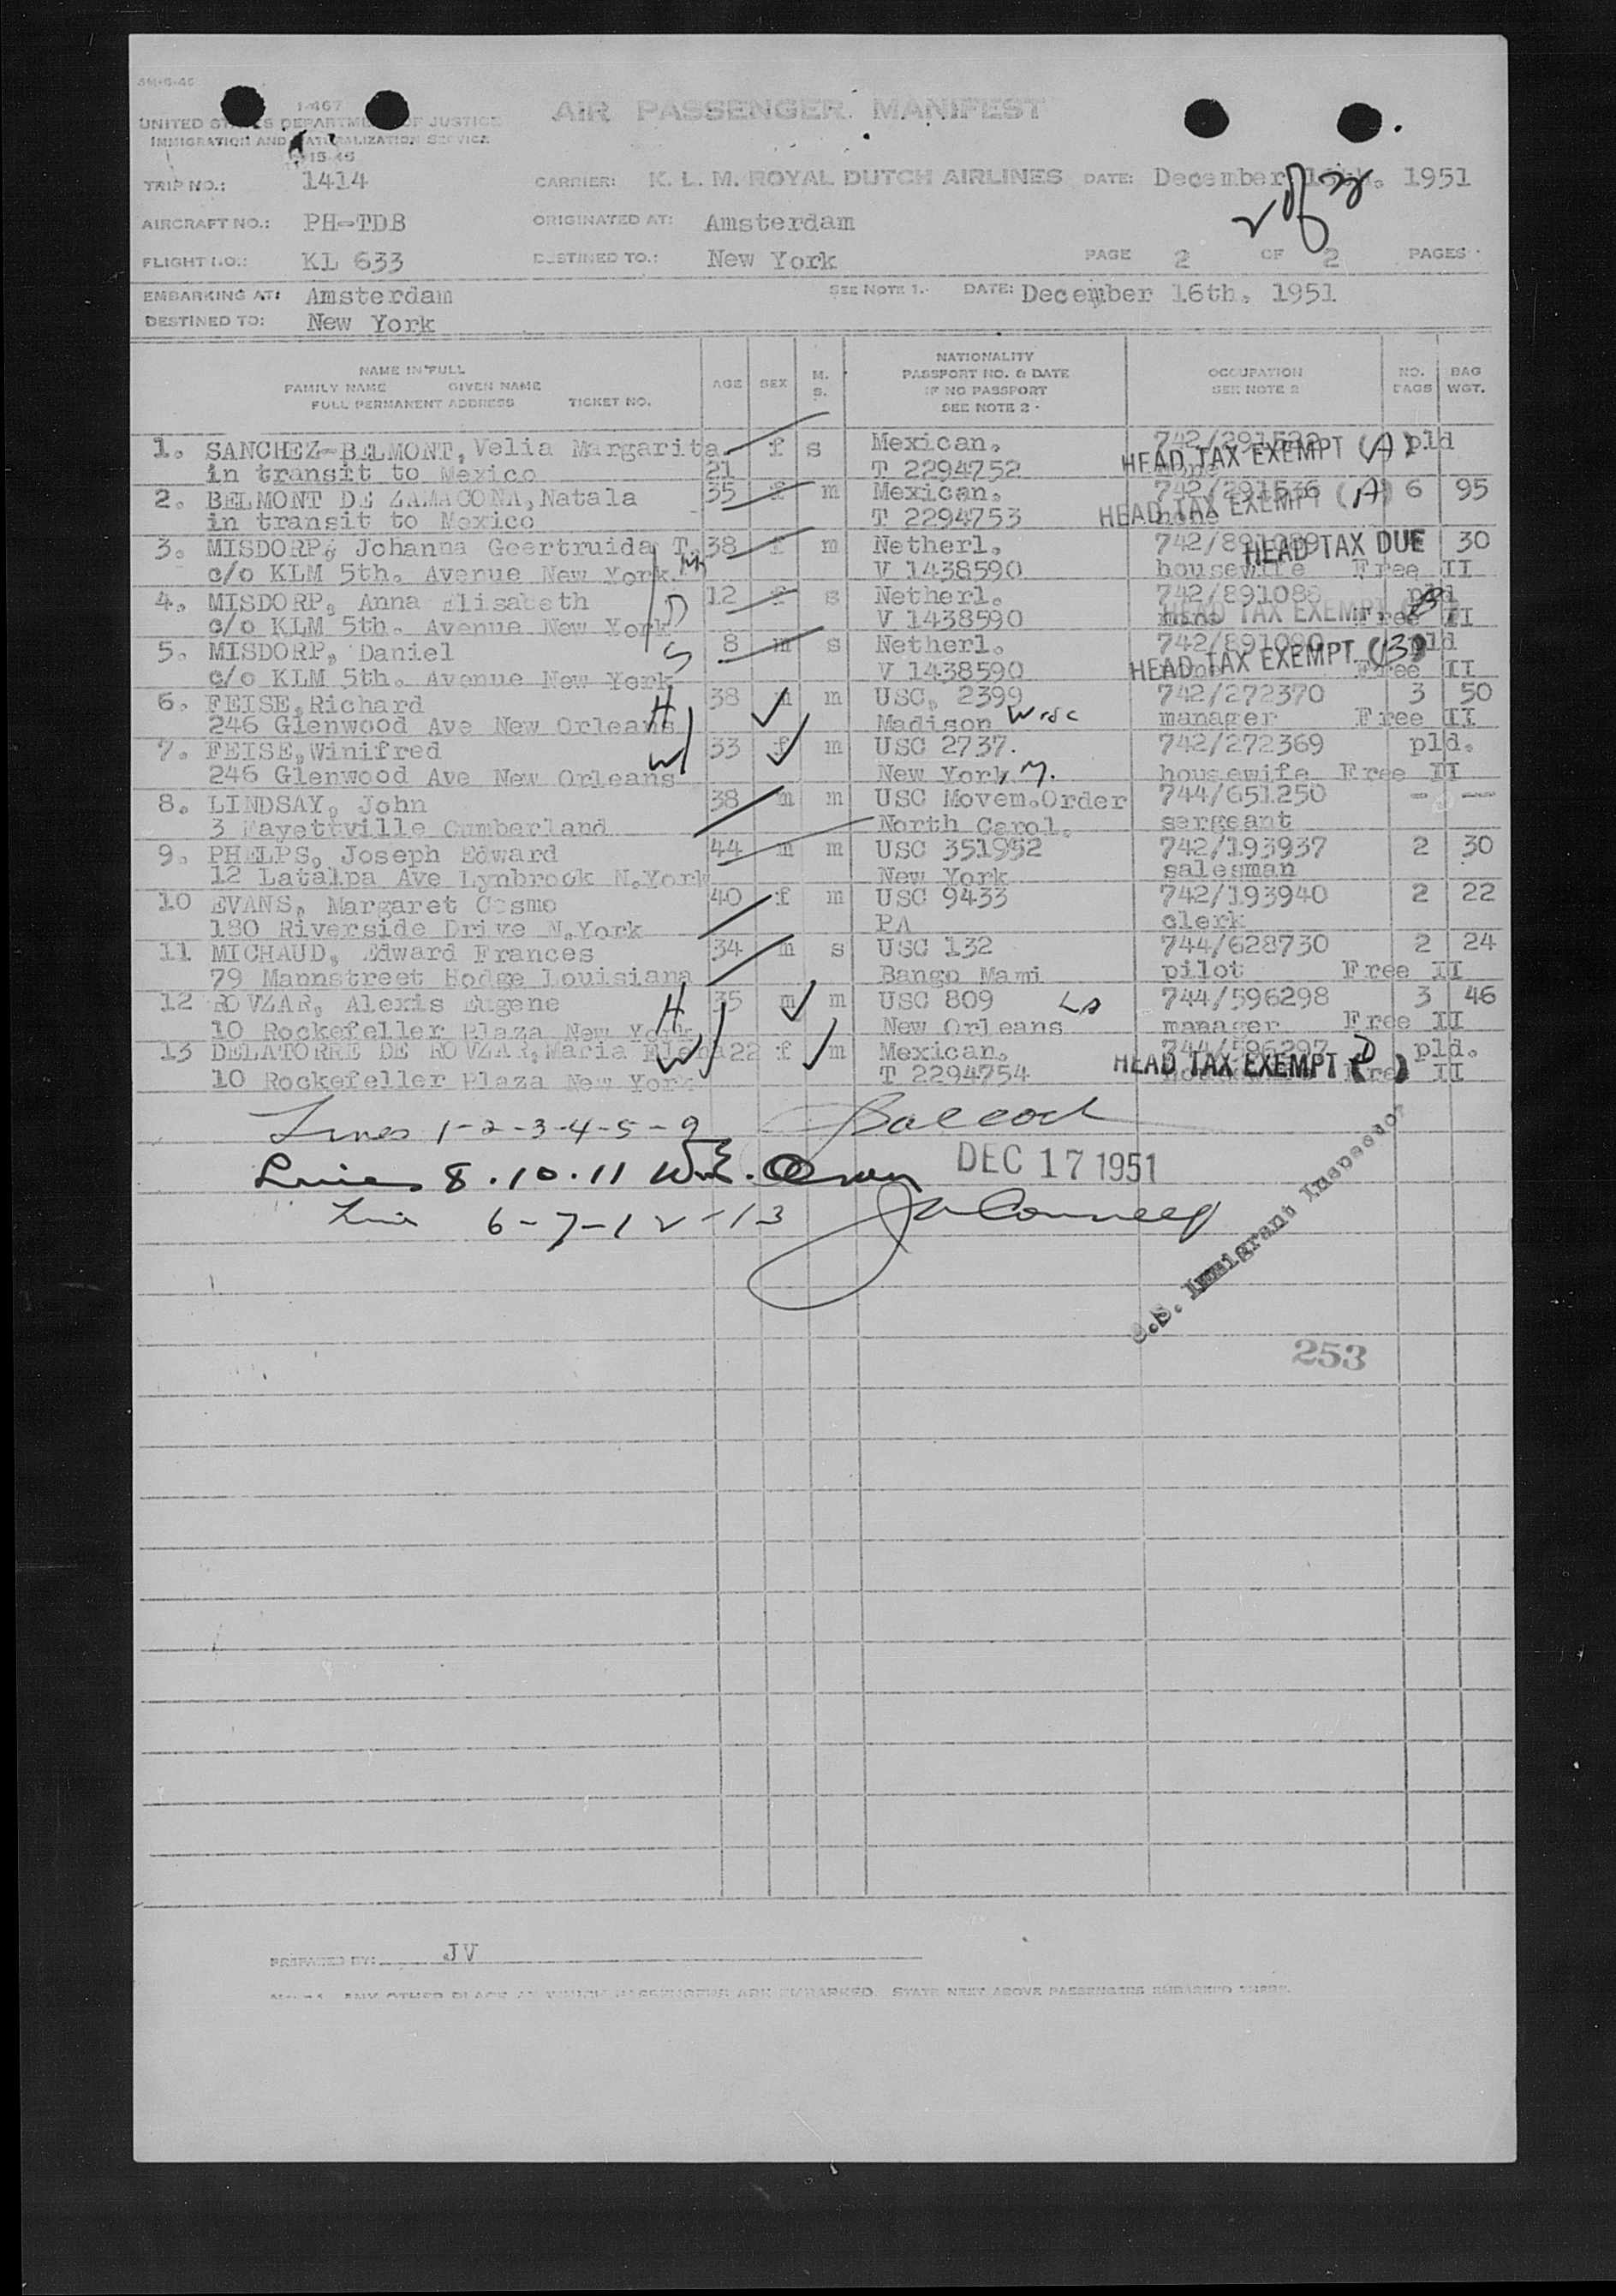 AIR PASSENGER MANIFEST
1-467
UNITED STATES DEPARTMENT OF JUSTICE
IMMIGRATION AND NATURALIZATION SERVICE
TRIP NO.: 1414 CARRIER: K. L. M. ROYAL DUTCH AIRLINES DATE: December 1951
AIRCRAFT NO.: PH-TDB ORIGINATED AT: Amsterdam
FLIGHT NO.: KL 633 DESTINED TO.: New York PAGE 2 OF 2 PAGES
EMBARKING AT: Amsterdam SEE NOTE 1. DATE: December 16th. 1951
DESTINED TO: New York
NAME IN FULL
FAMILY NAME GIVEN NAME
FULL PERMANENT ADDRESS TICKET NO.
AGE SEX M. S.
NATIONALITY
PASSPORT NO. & DATE
IF NO PASSPORT
SEE NOTE 2
OCCUPATION
SEE NOTE 2
NO. BAGS
BAG WGT.
1. SANCHEZ-BELMONT, Velia Margarita f s Mexican. pld
in transit to Mexico 21 T 2294752 HEAD TAX EXEMPT (A)
2. BELMONT DE ZAMACONA, Natala 35 f m Mexican. 742/291536 6 95
in transit to Mexico T 2294753 none HEAD TAX EXEMPT (A)
3. MISDORP, Johanna Geertruida T. 38 f m Netherl. HEAD TAX DUE 30
c/o KLM 5th. Avenue New York V 1438590 housewife Free II
4. MISDORP, Anna Elisabeth 12 f s Netherl. pld
c/o KLM 5th. Avenue New York D V 1438590 HEAD TAX EXEMPT Free II
5. MISDORP, Daniel 8 m s Netherl. 742/891090 pld
c/o KLM 5th. Avenue New York S V 1438590 HEAD TAX EXEMPT Free II
6. FEISE, Richard H 38 m m USC, 2399 742/272370 3 50
246 Glenwood Ave New Orleans Madison Wisc manager Free II
7. FEISE, Winifred W 33 f m USC 2737. 742/272369 pld.
246 Glenwood Ave New Orleans New York, N. housewife Free II
8. LINDSAY, John 38 m m USC Movem.Order 744/651250 - --
3 Fayettville Cumberland North Carol. sergeant
9. PHELPS, Joseph Edward 44 m m USC 351952 742/193937 2 30
12 Latalpa Ave Lynbrook N.York New York salesman
10 EVANS, Margaret Cosmo 40 f m USC 9433 742/193940 2 22
180 Riverside Drive N.York PA clerk
11 MICHAUD, Edward Frances 34 m s USC 132 744/628730 2 24
79 Mannstreet Hodge Louisiana Bango Mami pilot Free II
12 ROVZAR, Alexis Eugene H 35 m m USC 809 La 744/596298 3 46
10 Rockefeller Plaza New York New Orleans manager Free II
13 DELATORRE DE ROVZAR, Maria Elena 22 f m Mexican. 744/596297 pld.
10 Rockefeller Plaza New York W T 2294754 HEAD TAX EXEMPT (D) Free II
Lines 1-2-3-4-5-9
Lines 8.10.11
DEC 17 1951
Line 6-7-12-13
U.S. Immigrant Inspector
253
PREPARED BY: JV
ANY OTHER PLACE AT WHICH PASSENGERS ARE EMBARKED. STATE NEXT ABOVE PASSENGERS EMBARKED THERE.